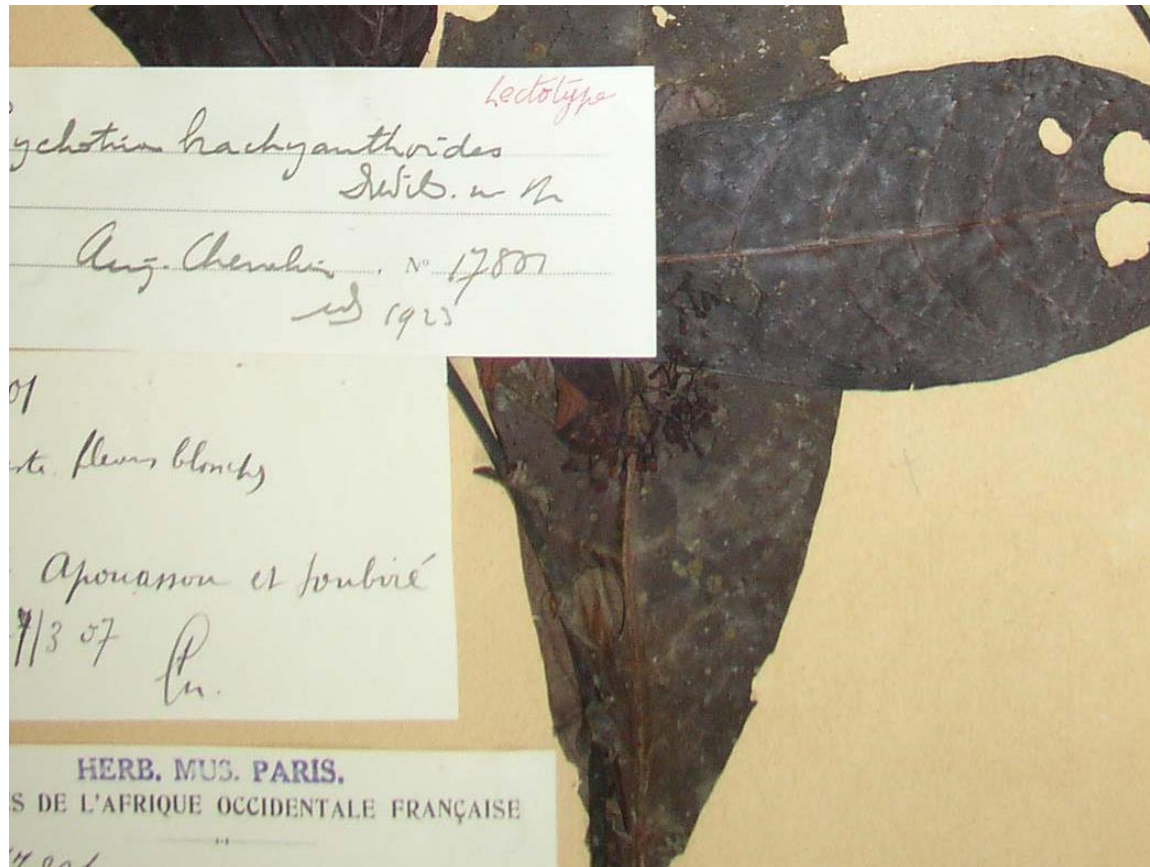 Lectotype
ychotria brachyanthoides
DWild. n
Aug. Chevalier. N° 17801
1923
01
fleurs blanches
Apouasson et Soubiré
7/3 07
HERB. MUS. PARIS.
S DE L'AFRIQUE OCCIDENTALE FRANÇAISE